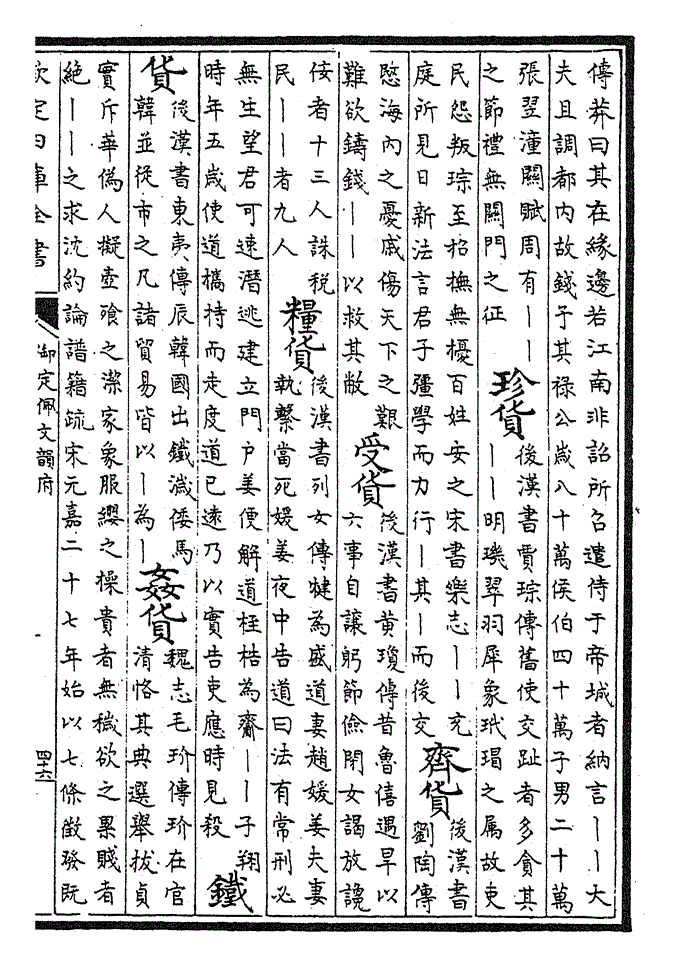 傳莽曰其在緣邊若江南非詔所召遣侍于帝城者納言丨丨大
夫且調都内故錢予其祿公歲八十萬侯伯四十萬子男二十萬
張翌潼關賦周有丨丨
之節禮無關門之征
珍貨
後漢書賈琮傳舊使交趾者多貪其
丨丨明璣翠羽犀象玳瑁之属故吏
民怨叛琮至招撫無擾百姓安之宋書樂志丨丨充
庭所見日新法言君子彊學而力行丨其丨而後交
齊貨
後漢書
劉陶傳
愍海内之憂戚傷天下之艱
難欲鑄錢丨丨以救其敝
受貨
後漢書黄瓊傳昔魯僖遇旱以
六事自讓躬節儉閉女謁放讒
佞者十三人誅税
民丨丨者九人
糧貨
後漢書列女傳犍為盛道妻趙媛姜夫妻
執繫當死媛姜夜中告道曰法有常刑必
無生望君可速潛逃建立門户姜便解道桎梏為齎丨丨子翔
時年五歲使道攜持而走度道已遠乃以實告吏應時見殺
鐵
貨
後漢書東夷傳辰韓國出鐵濊倭馬
韓並從市之凡諸貿易皆以丨為丨
姦貨
魏志毛玠傳玠在官
清恪其典選舉拔貞
實斥華偽人擬壺飱之潔家象服纓之操貴者無穢欲之累賤者
絶丨丨之求沈約論譜籍疏宋元嘉二十七年始以七條徵發既
欽定四庫全書
御定佩文韻府
四十六